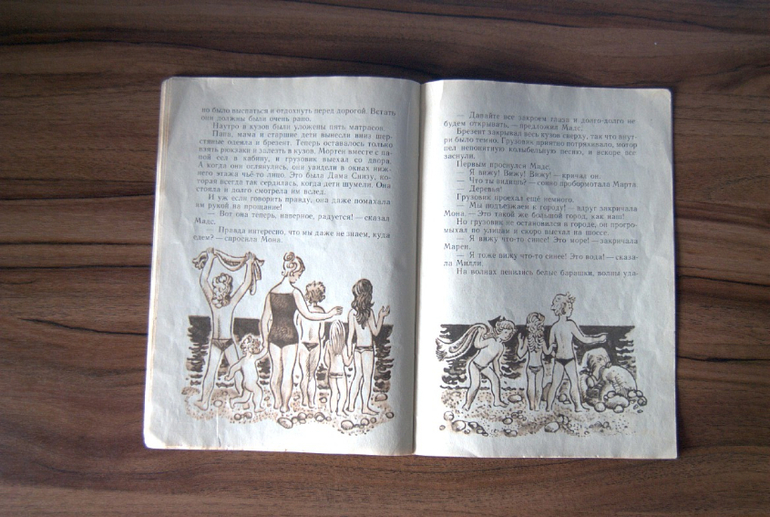 но было выспаться и отдохнуть перед дорогой. Встать
они должны были очень рано.
Наутро в кузов были уложены пять матрасов.
Папа, мама и старшие дети вынесли вниз шер-
стяные одеяла и брезент. Теперь оставалось только
взять рюкзаки и залезть в кузов. Мортен вместе с па-
пой сел в кабину, и грузовик выехал со двора.
А когда они оглянулись, они увидели в окнах ниж-
него этажа чьё-то лицо. Это была Дама Снизу, ко-
торая всегда так сердилась, когда дети шумели. Она
стояла и долго смотрела им вслед.
И уж если говорить правду, она даже помахала
им рукой на прощание!
— Вот она теперь, наверное, радуется! — сказал
Мадс.
— Правда интересно, что мы даже не знаем, куда
едем? — спросила Мона.
— Давайте все закроем глаза и долго-долго не
будем открывать, — предложил Мадс.
Брезент закрывал весь кузов сверху, так что внут-
ри было темно. Грузовик приятно потряхивало, мотор
пел непонятную колыбельную песню, и вскоре все
заснули.
Первым проснулся Мадс.
— Я вижу! Вижу! Вижу! — кричал он.
— Что ты видишь? — сонно пробормотала Марта.
— Деревья!
Грузовик проехал ещё немного.
— Мы подъезжаем к городу! — вдруг закричала
Мона. — Это такой же большой город, как наш!
Но грузовик не остановился в городе; он прогро-
мыхал по улицам и скоро выехал на шоссе.
— Я вижу что-то синее! Это море! — закричала
Марен.
— Я тоже вижу что-то синее! Это вода! — сказа-
ла Милли.
На волнах пенились белые барашки, волны уда-